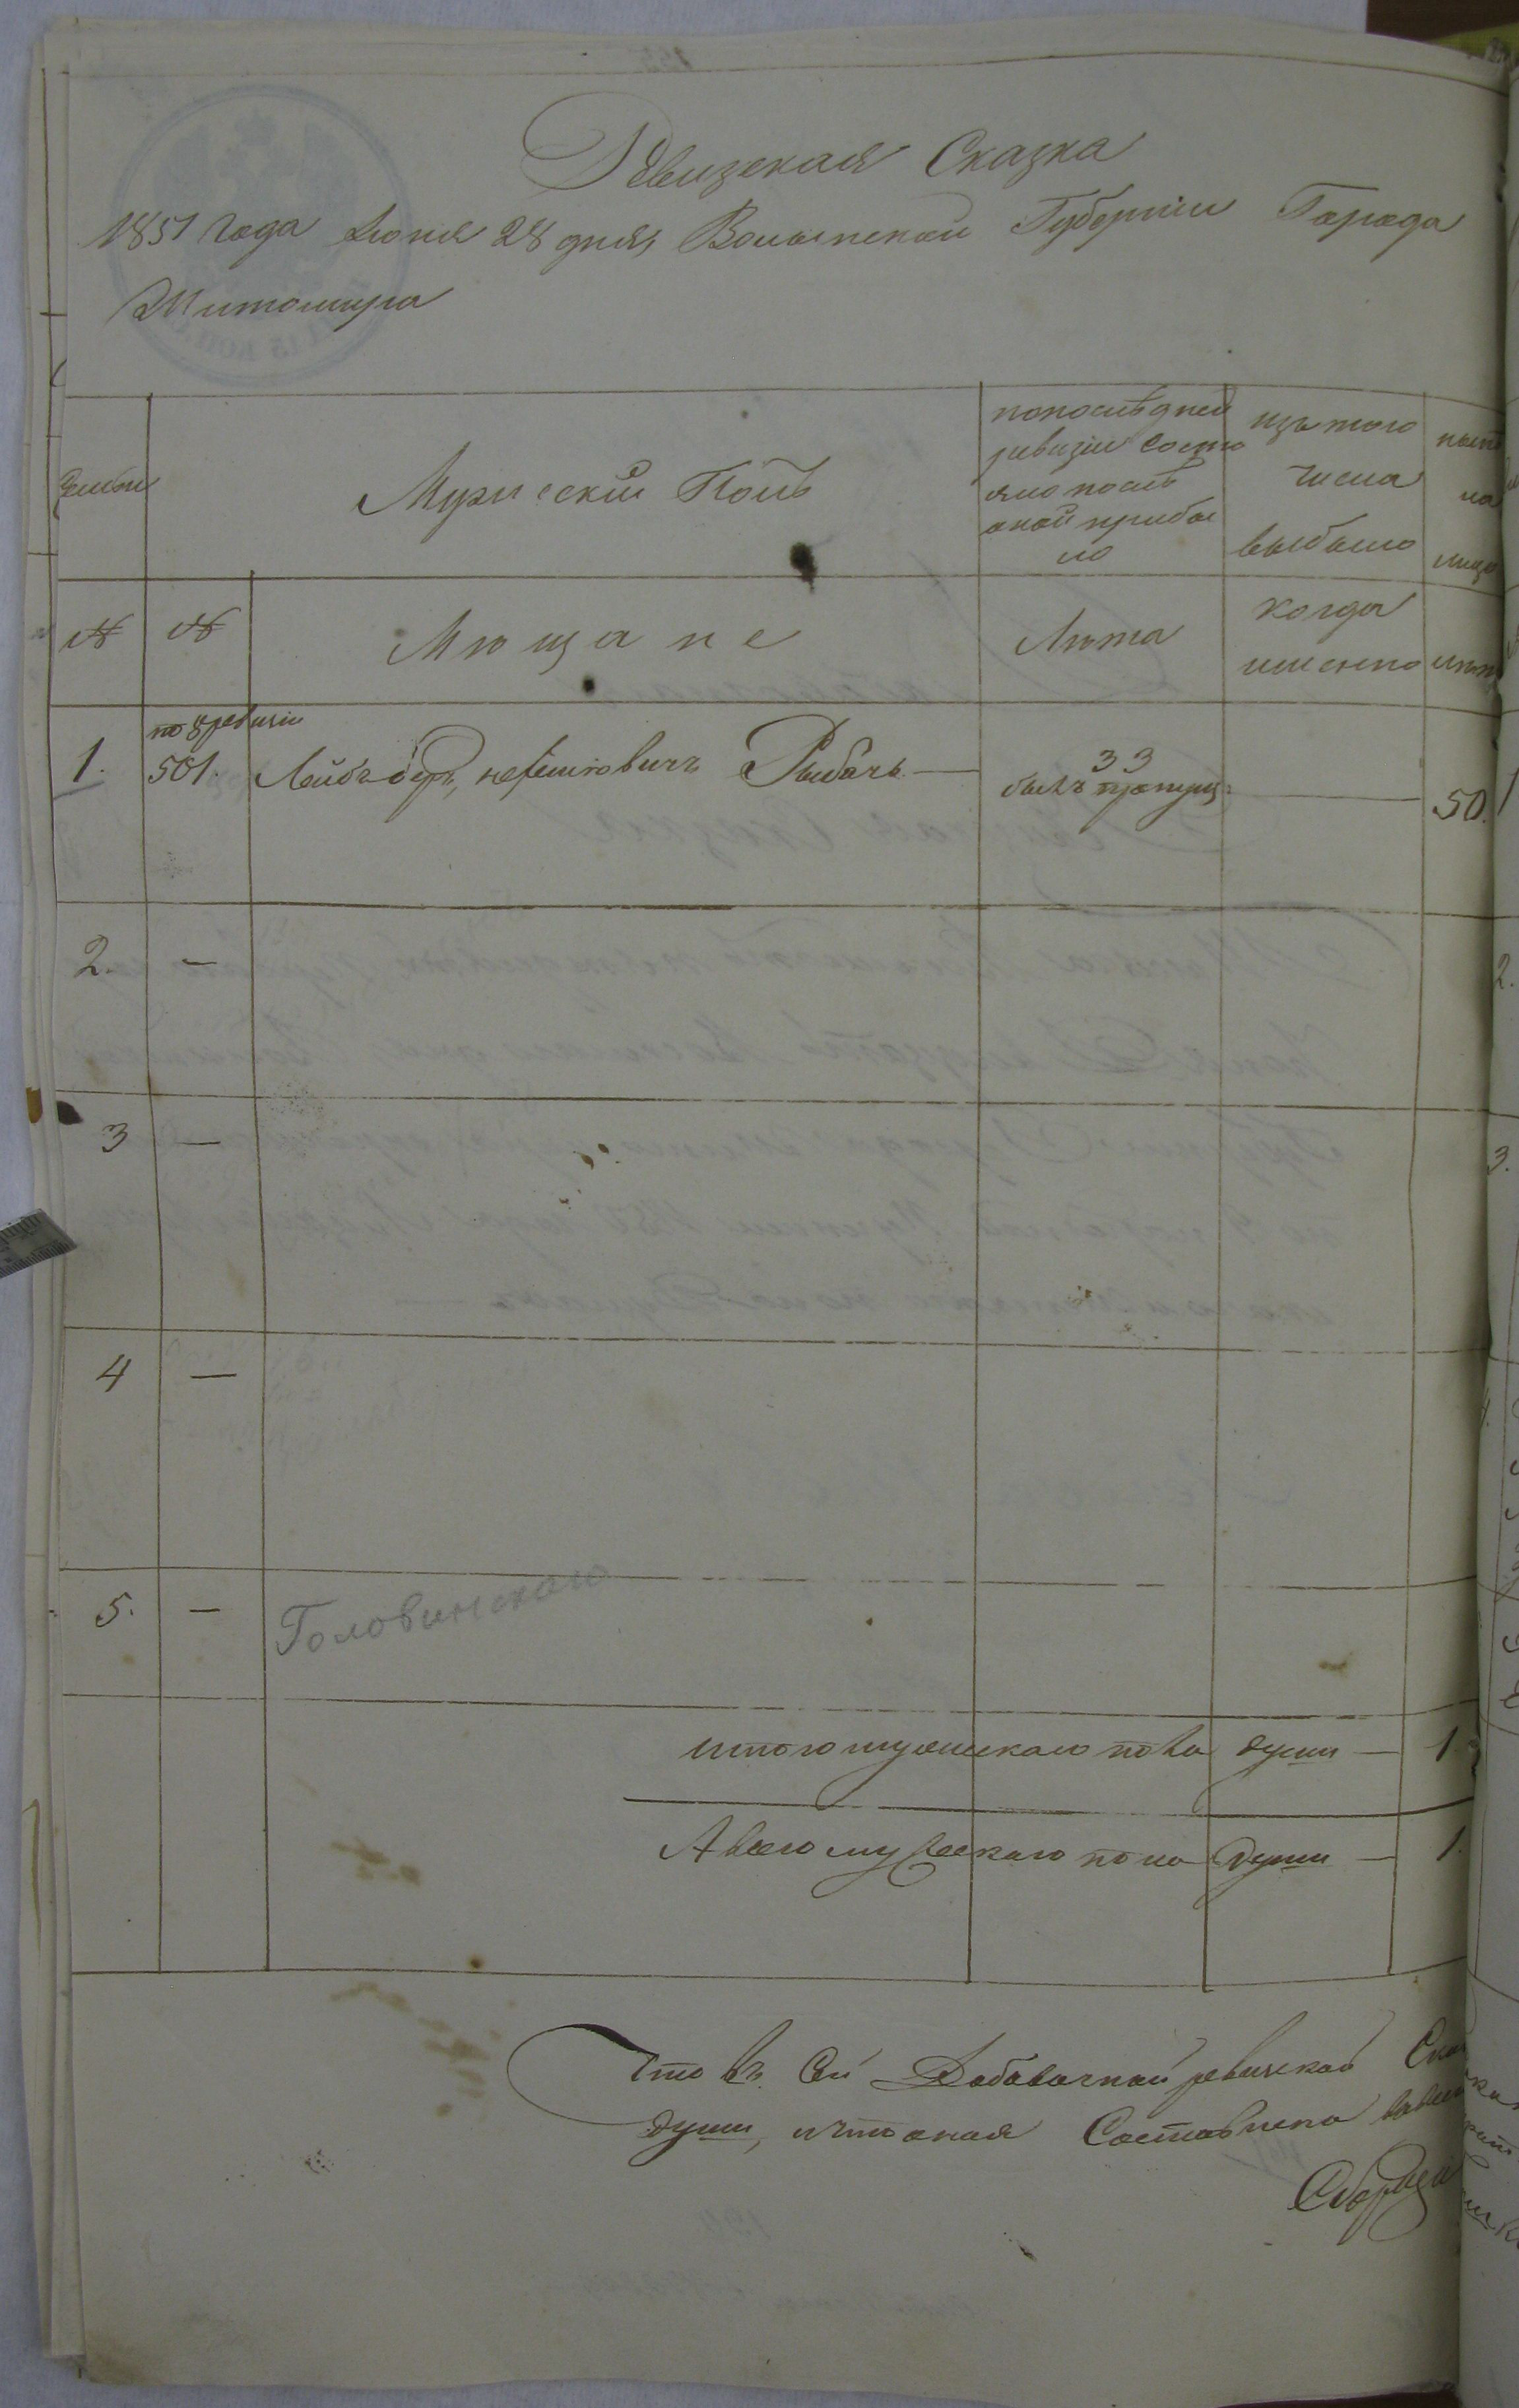 Ревизская Сказка
1851 года Июня 28 дня, Волынской Губернии Города
Житомира
Семьи
Мужескій Полъ
по послѣдней
ревизіи состо
яло послѣ
оной прибы
ло
изъ того
числа
выбыло
№ № Мѣщане Лѣта
когда
именно
по 8 ревизіи
1. 501. Лейбъ беръ, Рыбачъ — 33 — 50.
былъ пропущ:
2. —
3 —
4 —
5. — Головинскаго
итого мужескаго пола души — 1.
А всего мужескаго пола души — 1.
Что въ Сей Добавочной ревизской
души, и что оная Составлена